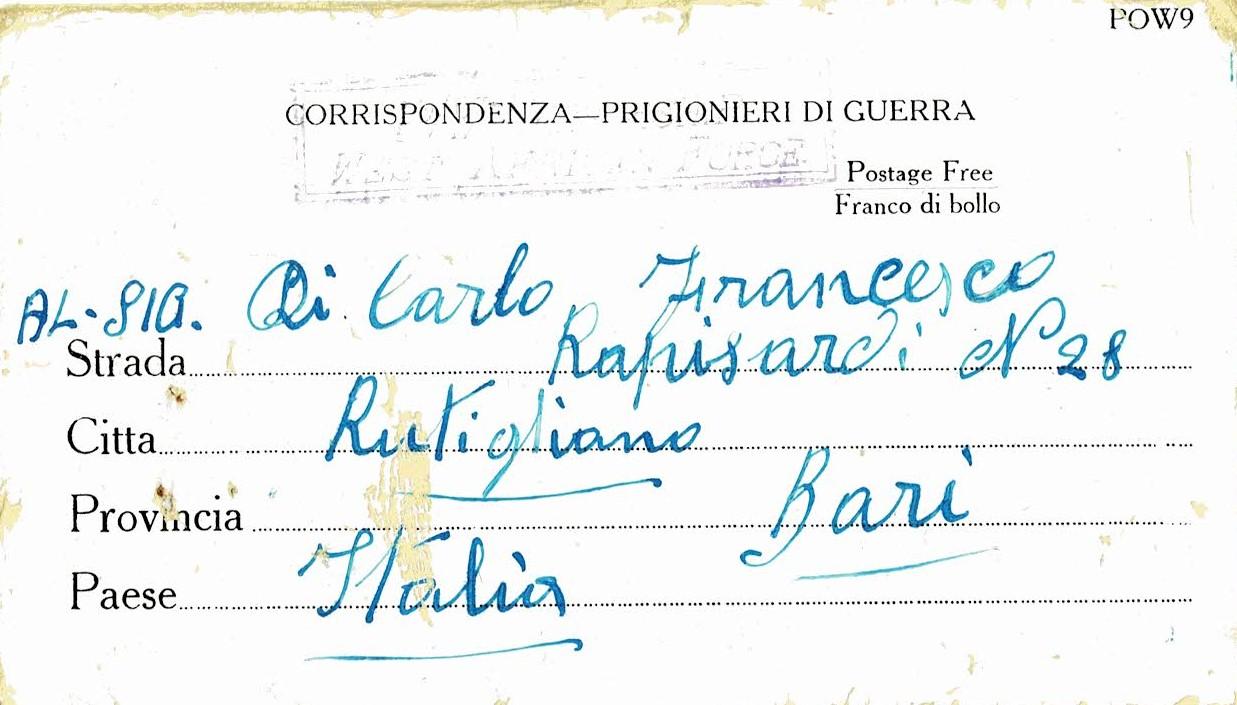 POW9
CORRISPONDENZA—PRIGIONIERI DI GUERRA
WEST AFRICAN FORCE
Postage Free
Franco di bollo
AL-SIG. Di Carlo Francesco
Strada Rapisardi N 28
Citta Rutigliano
Provincia Bari
Paese Italia